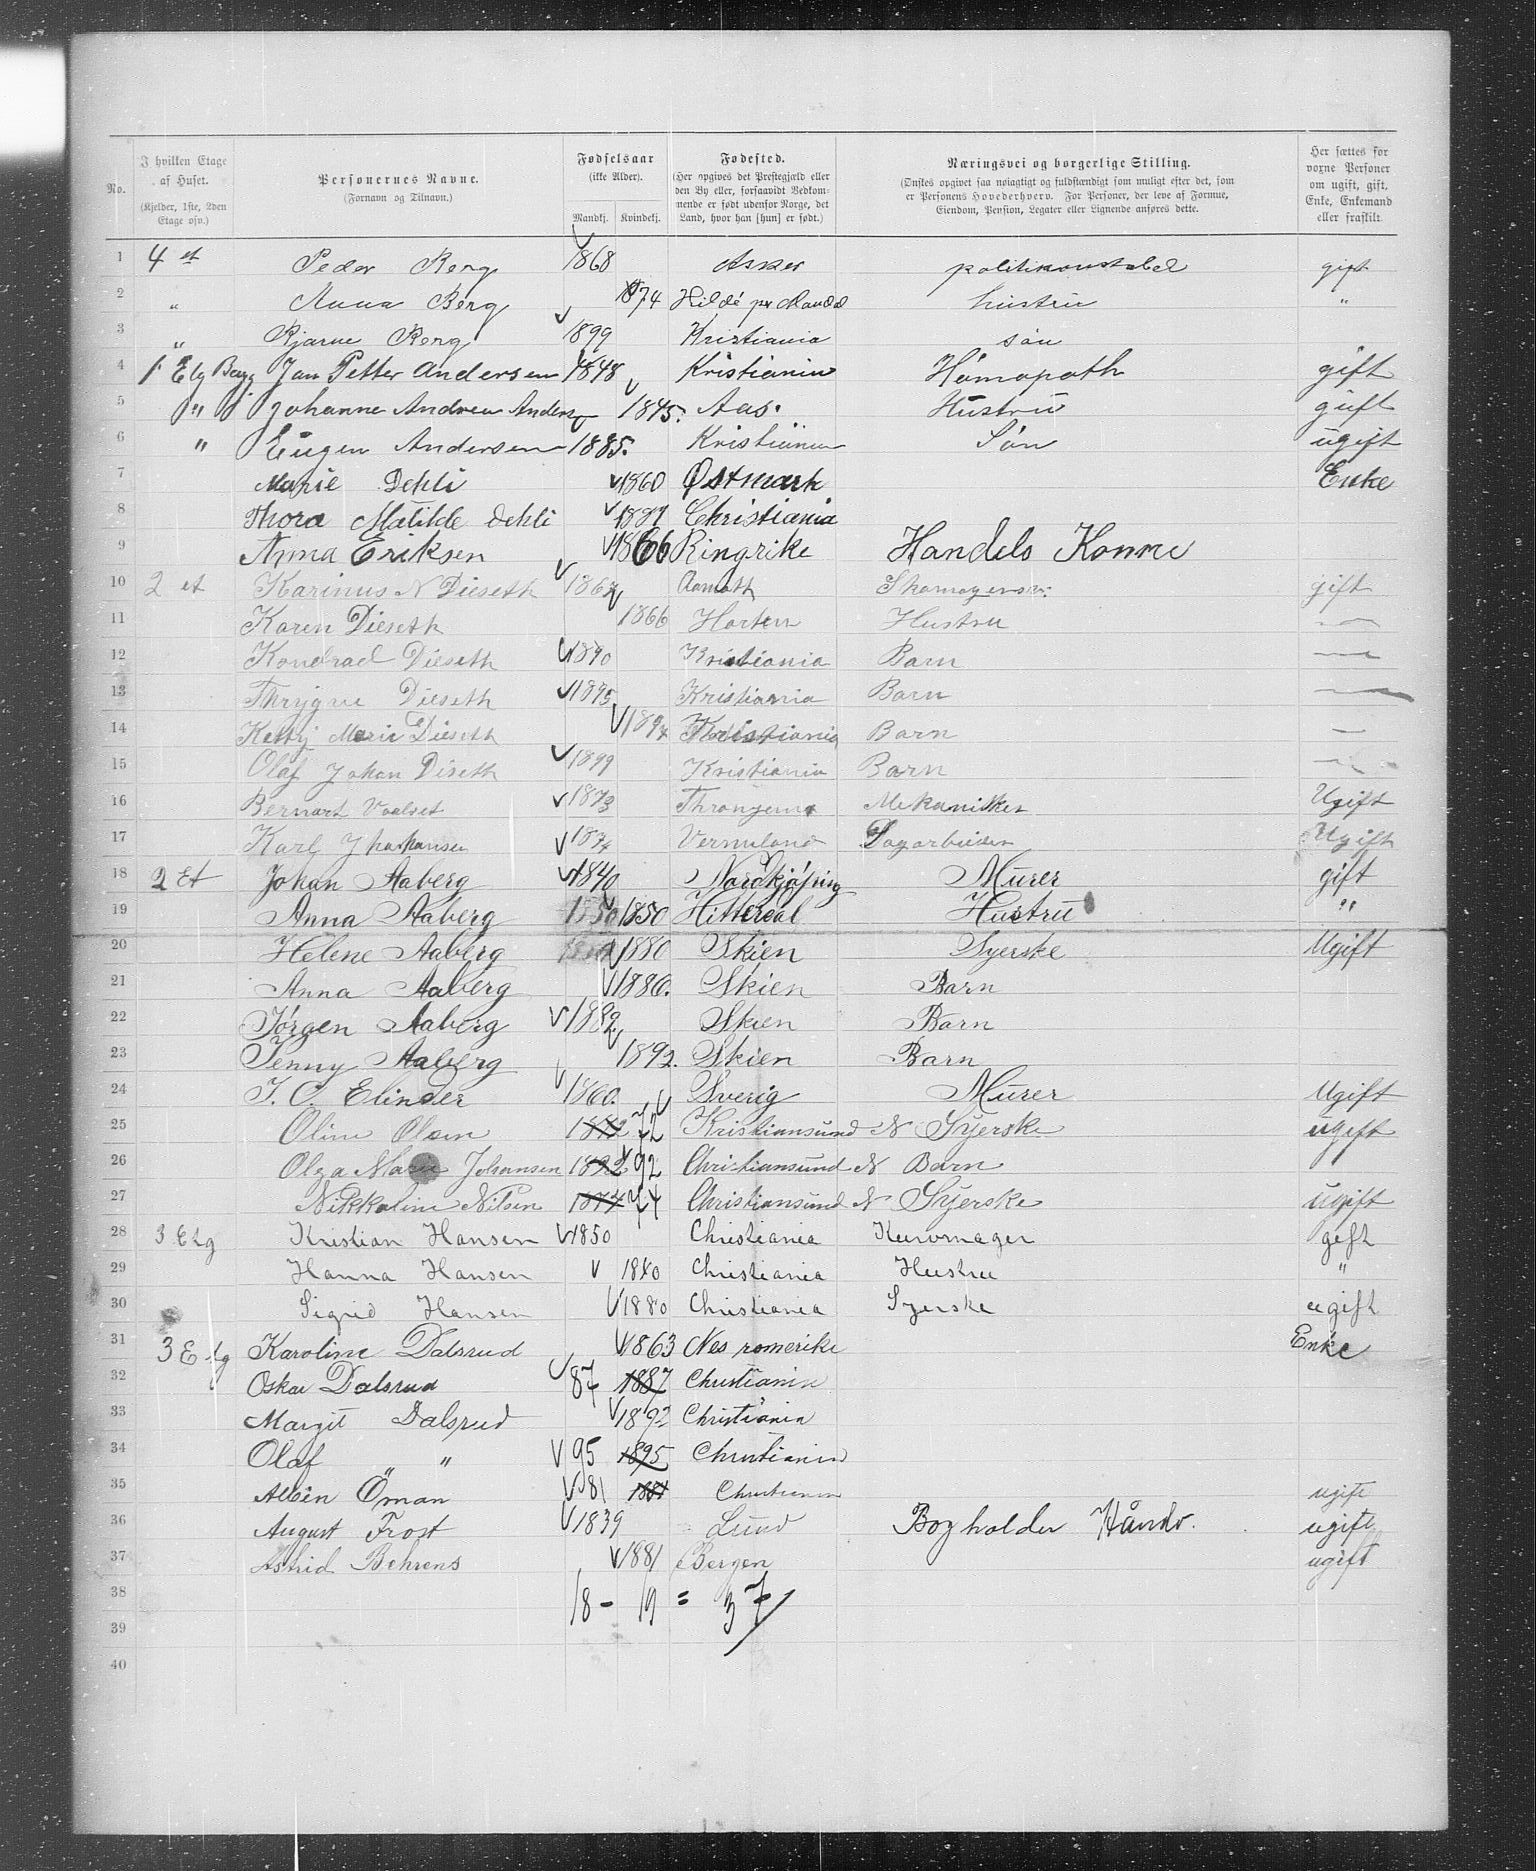 No.
I hvilken Etage af Huset. (Kjelder, 1ste, 2den Etage osv.)
Personernes Navne. (Fornavn og Tilnavn.)
Fødselsaar (ikke Alder). Mandkj. Kvindekj.
Fødested. (Her opgives det Prestegjæld eller den By eller, forsaavidt Vedkommende er født udenfor Norge, det Land, hvor han [hun] er født.)
Næringsvei og borgerlige Stilling. (Ønskes opgivet saa nøiagtigt og fuldstændigt som muligt efter det, som er Personens Hovederhverv. For Personer, der leve af Formue, Eiendom, Pension, Legater eller Lignende anføres dette.
Her sættes for voxne Personer om ugift, gift, Enke, Enkemand eller fraskilt.
1 4 et Peder Berg 1868 Asker politikonstabel gift
2 " Anna Berg 1874 Hustru "
3 " Bjarne Berg 1899 Kristiania søn
4 1 Etg Jan Petter Andersen 1848 Kristiania Hömopath gift
5 " Johanne Andrea 1845. Aas. Hustru gift
6 " Eugen Andersen 1885. Kristiania Søn ugift
7 Marie Dehli 1860 Østmark Enke
8 Thora Matilde Dehli Christiania
9 Anna Eriksen 1866 Ringrike Handels Konne
10 2 et Karinus N Dieseth gift
11 Karen Dieseth 1866 Horten Hustru
12 Kondrad Dieseth 1890 Kristiania Barn
13 Thrygve Dieseth 1895 Kristiania Barn
14 Ketty Marie Dieseth Kristiania Barn
15 Olaf Johan Diseth 1899 Kristiania Barn
16 Bernart 1873 Mekaniker Ugift
17 Karl Vermland Ugift
18 2 Et Johan Aaberg 1840 Murer gift
19 Anna Aaberg 1850 Hitterdal Hustru "
20 Helene Aaberg 1880 Skien Syerske Ugift
21 Anna Aaberg 1886. Skien Barn
22 Jørgen Aaberg 1882. Skien Barn
23 Jenny Aaberg 1892. Skien Barn
24 Elinder 1860. Sverig Murer Ugift
25 Oline Olsen 1872 72 Kristiansund N Syerske ugift
26 Olga Marie Johansen 1892 92 Christiansund N Barn
27 Nikkoline Nilsen 1874 74 Christiansund N Syerske ugift
28 3 Etg Kristian Hansen 1850 Christiania Kurvmager gift
29 Hanna Hansen Christiania Hustru "
30 Sigrid Hansen 1880 Christiania Syerske ugift
31 3 Etg Karoline Dalsrud 1863 Nes romerike Enke
32 Oskar Dalsrud 87 1887 Christiania
33 Margit Dalsrud 1892 Christiania
34 Olaf " " 95 1895 Christiania
35 Albin Öman 81 1881 Christiania ugift
36 August Frost 1839 Lund Bogholder Håndv. ugift
37 Astrid Behrens 1881 Bergen ugift
38 18 - 19 = 37
39
40